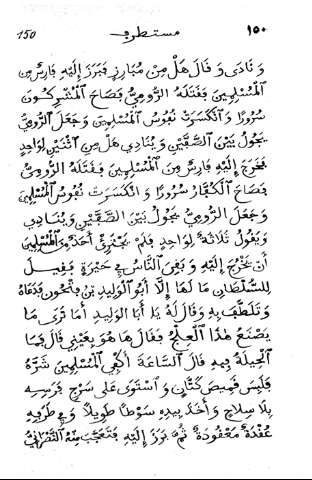 150 مستطرف ١٥٠
وَنَادَى وَقَالَ هَلْ مِنْ مُبَارِزٍ فَبَرَزَ إِلَيْهِ فَارِسٌ مِنَ
ٱلْمُسْلِمِينَ فَقَتَلَهُ ٱلرُّومِيُّ فَصَاحَ ٱلْمُشْرِكُونَ
سُرُورًا وَٱنْكَسَرَتْ نُفُوسُ ٱلْمُسْلِمِينَ وَجَعَلَ ٱلرُّومِيُّ
يَجُولُ بَيْنَ ٱلصَّفَّيْنِ وَيُنَادِي هَلْ مِنِ ٱثْنَيْنِ لِوَاحِدٍ
فَخَرَجَ إِلَيْهِ فَارِسٌ مِنَ ٱلْمُسْلِمِينَ فَقَتَلَهُ ٱلرُّومِيُّ
فَصَاحَ ٱلْكُفَّارُ سُرُورًا وَٱنْكَسَرَتْ نُفُوسُ ٱلْمُسْلِمِينَ
وَجَعَلَ ٱلرُّومِيُّ يَجُولُ بَيْنَ ٱلصَّفَّيْنِ وَيُنَادِي
وَيَقُولُ ثَلَاثَةٌ لِوَاحِدٍ فَلَمْ يَجْتَرِئْ أَحَدٌ مِنَ ٱلْمُسْلِمِينَ
أَنْ يَخْرُجَ إِلَيْهِ وَبَقِيَ ٱلنَّاسُ فِي حَيْرَةٍ فَقِيلَ
لِلسُّلْطَانِ مَا لَهَا إِلَّا أَبُو ٱلْوَلِيدِ بْنُ فَتْحُونَ فَدَعَاهُ
وَتَلَطَّفَ بِهِ وَقَالَ لَهُ يَا أَبَا ٱلْوَلِيدِ أَمَا تَرَى مَا
يَصْنَعُ هٰذَا ٱلْعِلْجُ فَقَالَ هَا هُوَ بِعَيْنِي قَالَ فَمَا
ٱلْحِيلَةُ فِيهِ قَالَ ٱلسَّاعَةَ أَكْفِي ٱلْمُسْلِمِينَ شَرَّهُ
فَلَبِسَ قَمِيصَ كَتَّانٍ وَٱسْتَوَى عَلَى سَرْجِ فَرَسِهِ
بِلَا سِلَاحٍ وَأَخَذَ بِيَدِهِ سَوْطًا طَوِيلًا وَفِي طَرَفِهِ
عُقْدَةٌ مَعْقُودَةٌ ثُمَّ بَرَزَ إِلَيْهِ فَتَعَجَّبَ مِنْهُ ٱلنَّصْرَانِيُّ